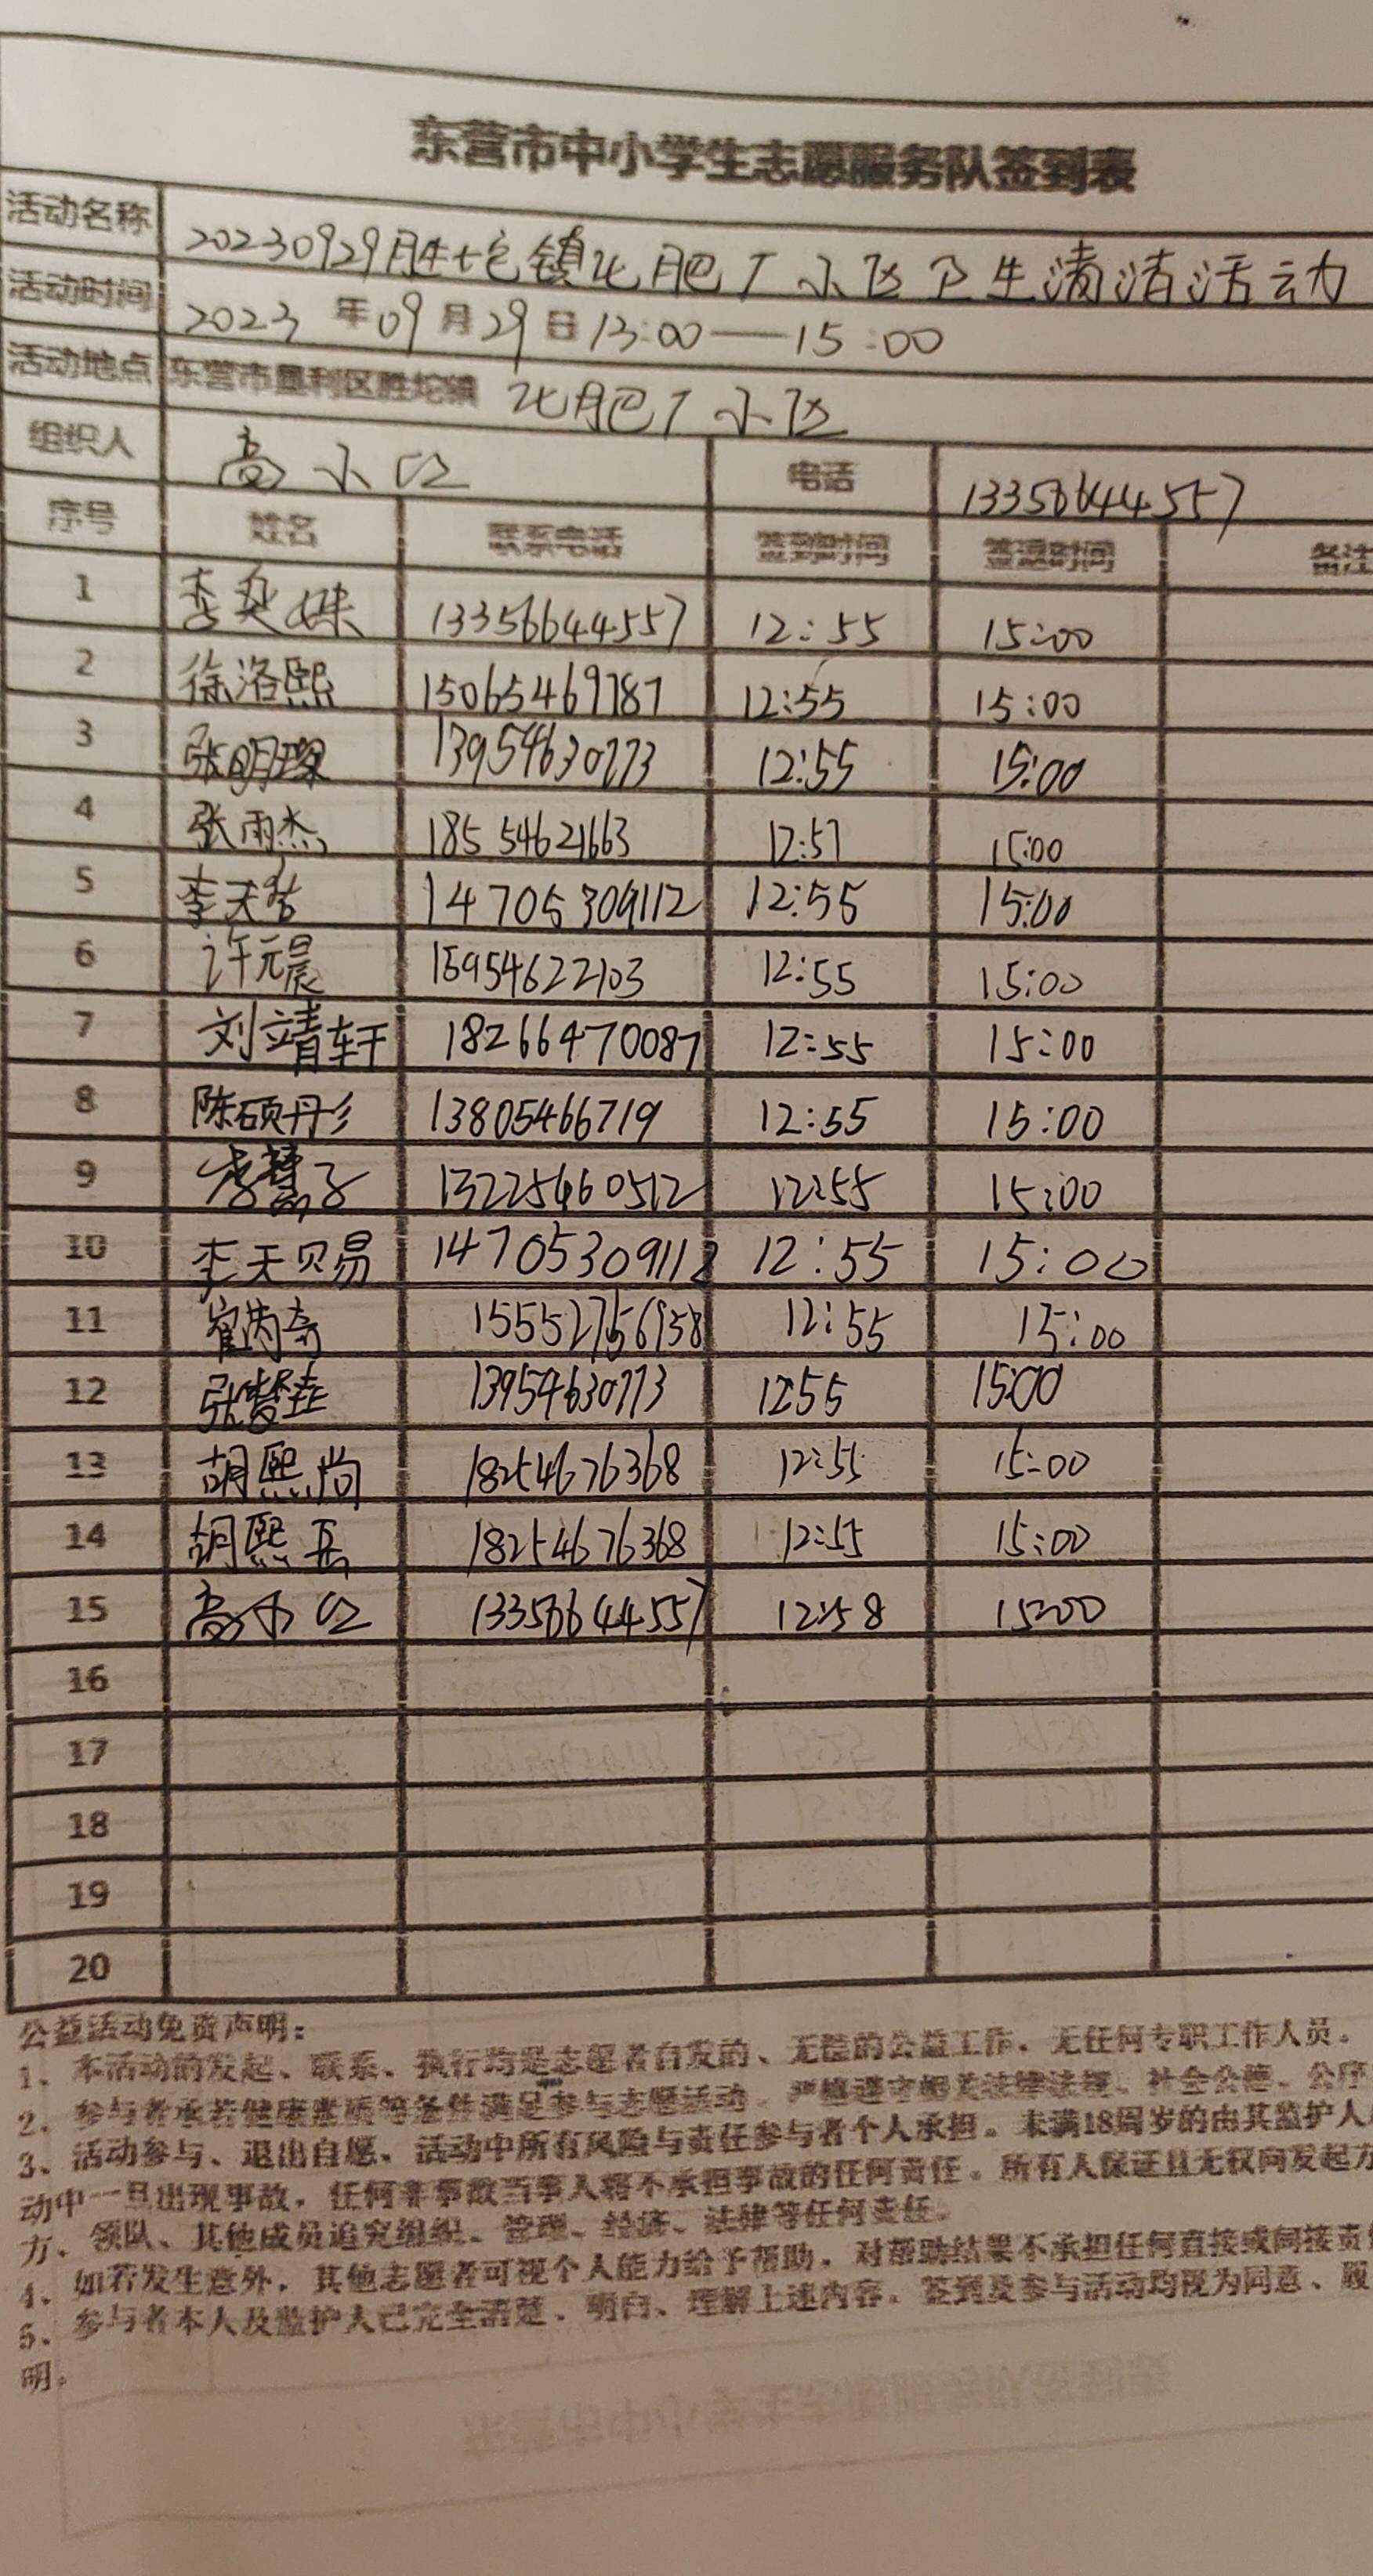 东营市中小学生志愿服务队签到表
活动名称 20230929胜坨镇化肥厂小区卫生清洁活动
活动时间 2023年09月29日13:00——15:00
活动地点 东营市垦利区胜坨镇 化肥厂小区
组织人 高小红 电话 13356644557
序号 姓名 联系电话 签到时间 签退时间 备注
1 李奕姝 13356644557 12:55 15:00
2 徐洛熙 15065469787 12:55 15:00
3 张明璨 13954630773 12:55 15:00
4 张雨杰 18554621663 12:57 15:00
5 李天 14705309112 12:55 15:00
6 许元晨 15954622103 12:55 15:00
7 刘靖轩 18266470087 12:55 15:00
8 陈硕彤 13805466719 12:55 15:00
9 李慧子 13225460512 12:55 15:00
10 李天赐 14705309112 12:55 15:00
11 崔芮奇 15552756958 12:55 15:00
12 张 13954630773 12:55 15:00
13 胡熙尚 18254676368 12:55 15:00
14 胡熙 18254676368 12:55 15:00
15 高小红 13356644557 12:58 15:00
16
17
18
19
20
公益活动免责声明:
1、本活动的发起、联系、执行均是志愿者自发的、无偿的公益工作,无任何专职工作人员。
2、参与者承若健康素质等条件满足参与志愿活动,严格遵守相关法律法规、社会公德、公序
3、活动参与、退出自愿,活动中所有风险与责任参与者个人承担。未满18周岁的由其监护人
动中一旦出现事故,任何非事故当事人将不承担事故的任何责任。所有人保证且无权向发起方
方、领队、其他成员追究组织、管理、经济、法律等任何责任。
4、如若发生意外,其他志愿者可视个人能力给予帮助,对帮助结果不承担任何直接或间接责
5、参与者本人及监护人已完全清楚、明白、理解上述内容。签到及参与活动均视为同意、履
明。